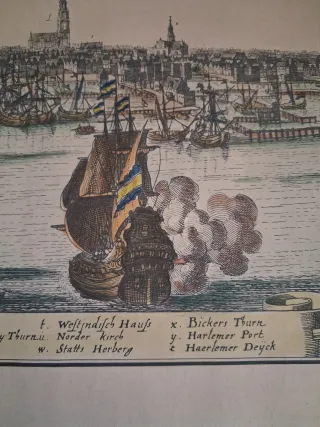 t. Westindisch Hauß x. Bickers Thurn
y Thurn. u. Norder kirch y. Harlemer Port
w. Statts Herberg z Haerlemer Deyck